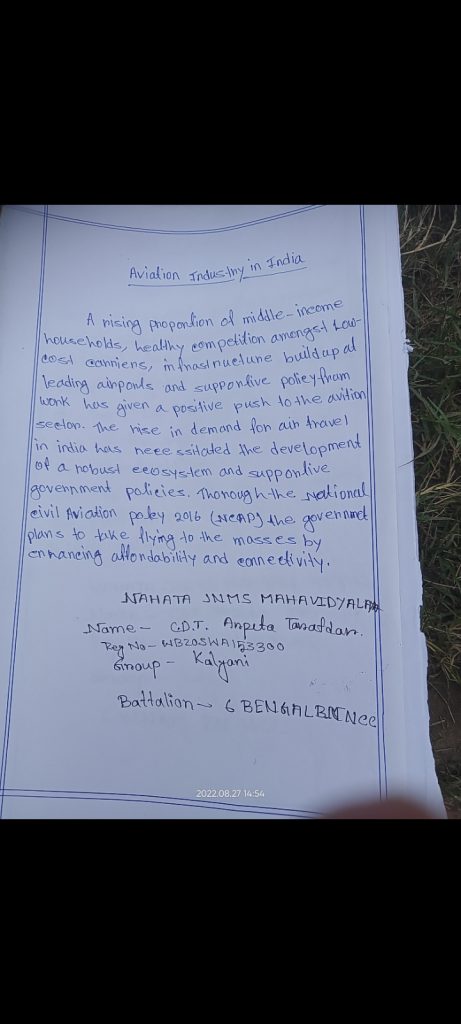 Aviation Industry in India
A rising proportion of middle-income
households, healthy competition amongst Low-
cost carriers, infrastructure buildup at
leading airports and supportive policy fram
work has given a positive push to the avition
sector. The rise in demand for air travel
in india has necessitated the development
of a robust ecosystem and supportive
government policies. Thorough the National
civil Aviation policy 2016 (NCAP) the government
plans to take flying to the masses by
enhancing affordability and connectivity.
NAHATA JNMS MAHAVIDYALAYA
Name - CDT. Arpita Tarafdar.
Reg No - WB20SWA153300
Group - Kalyani
Battalion - 6 BENGAL BN NCC
2022.08.27 14:54